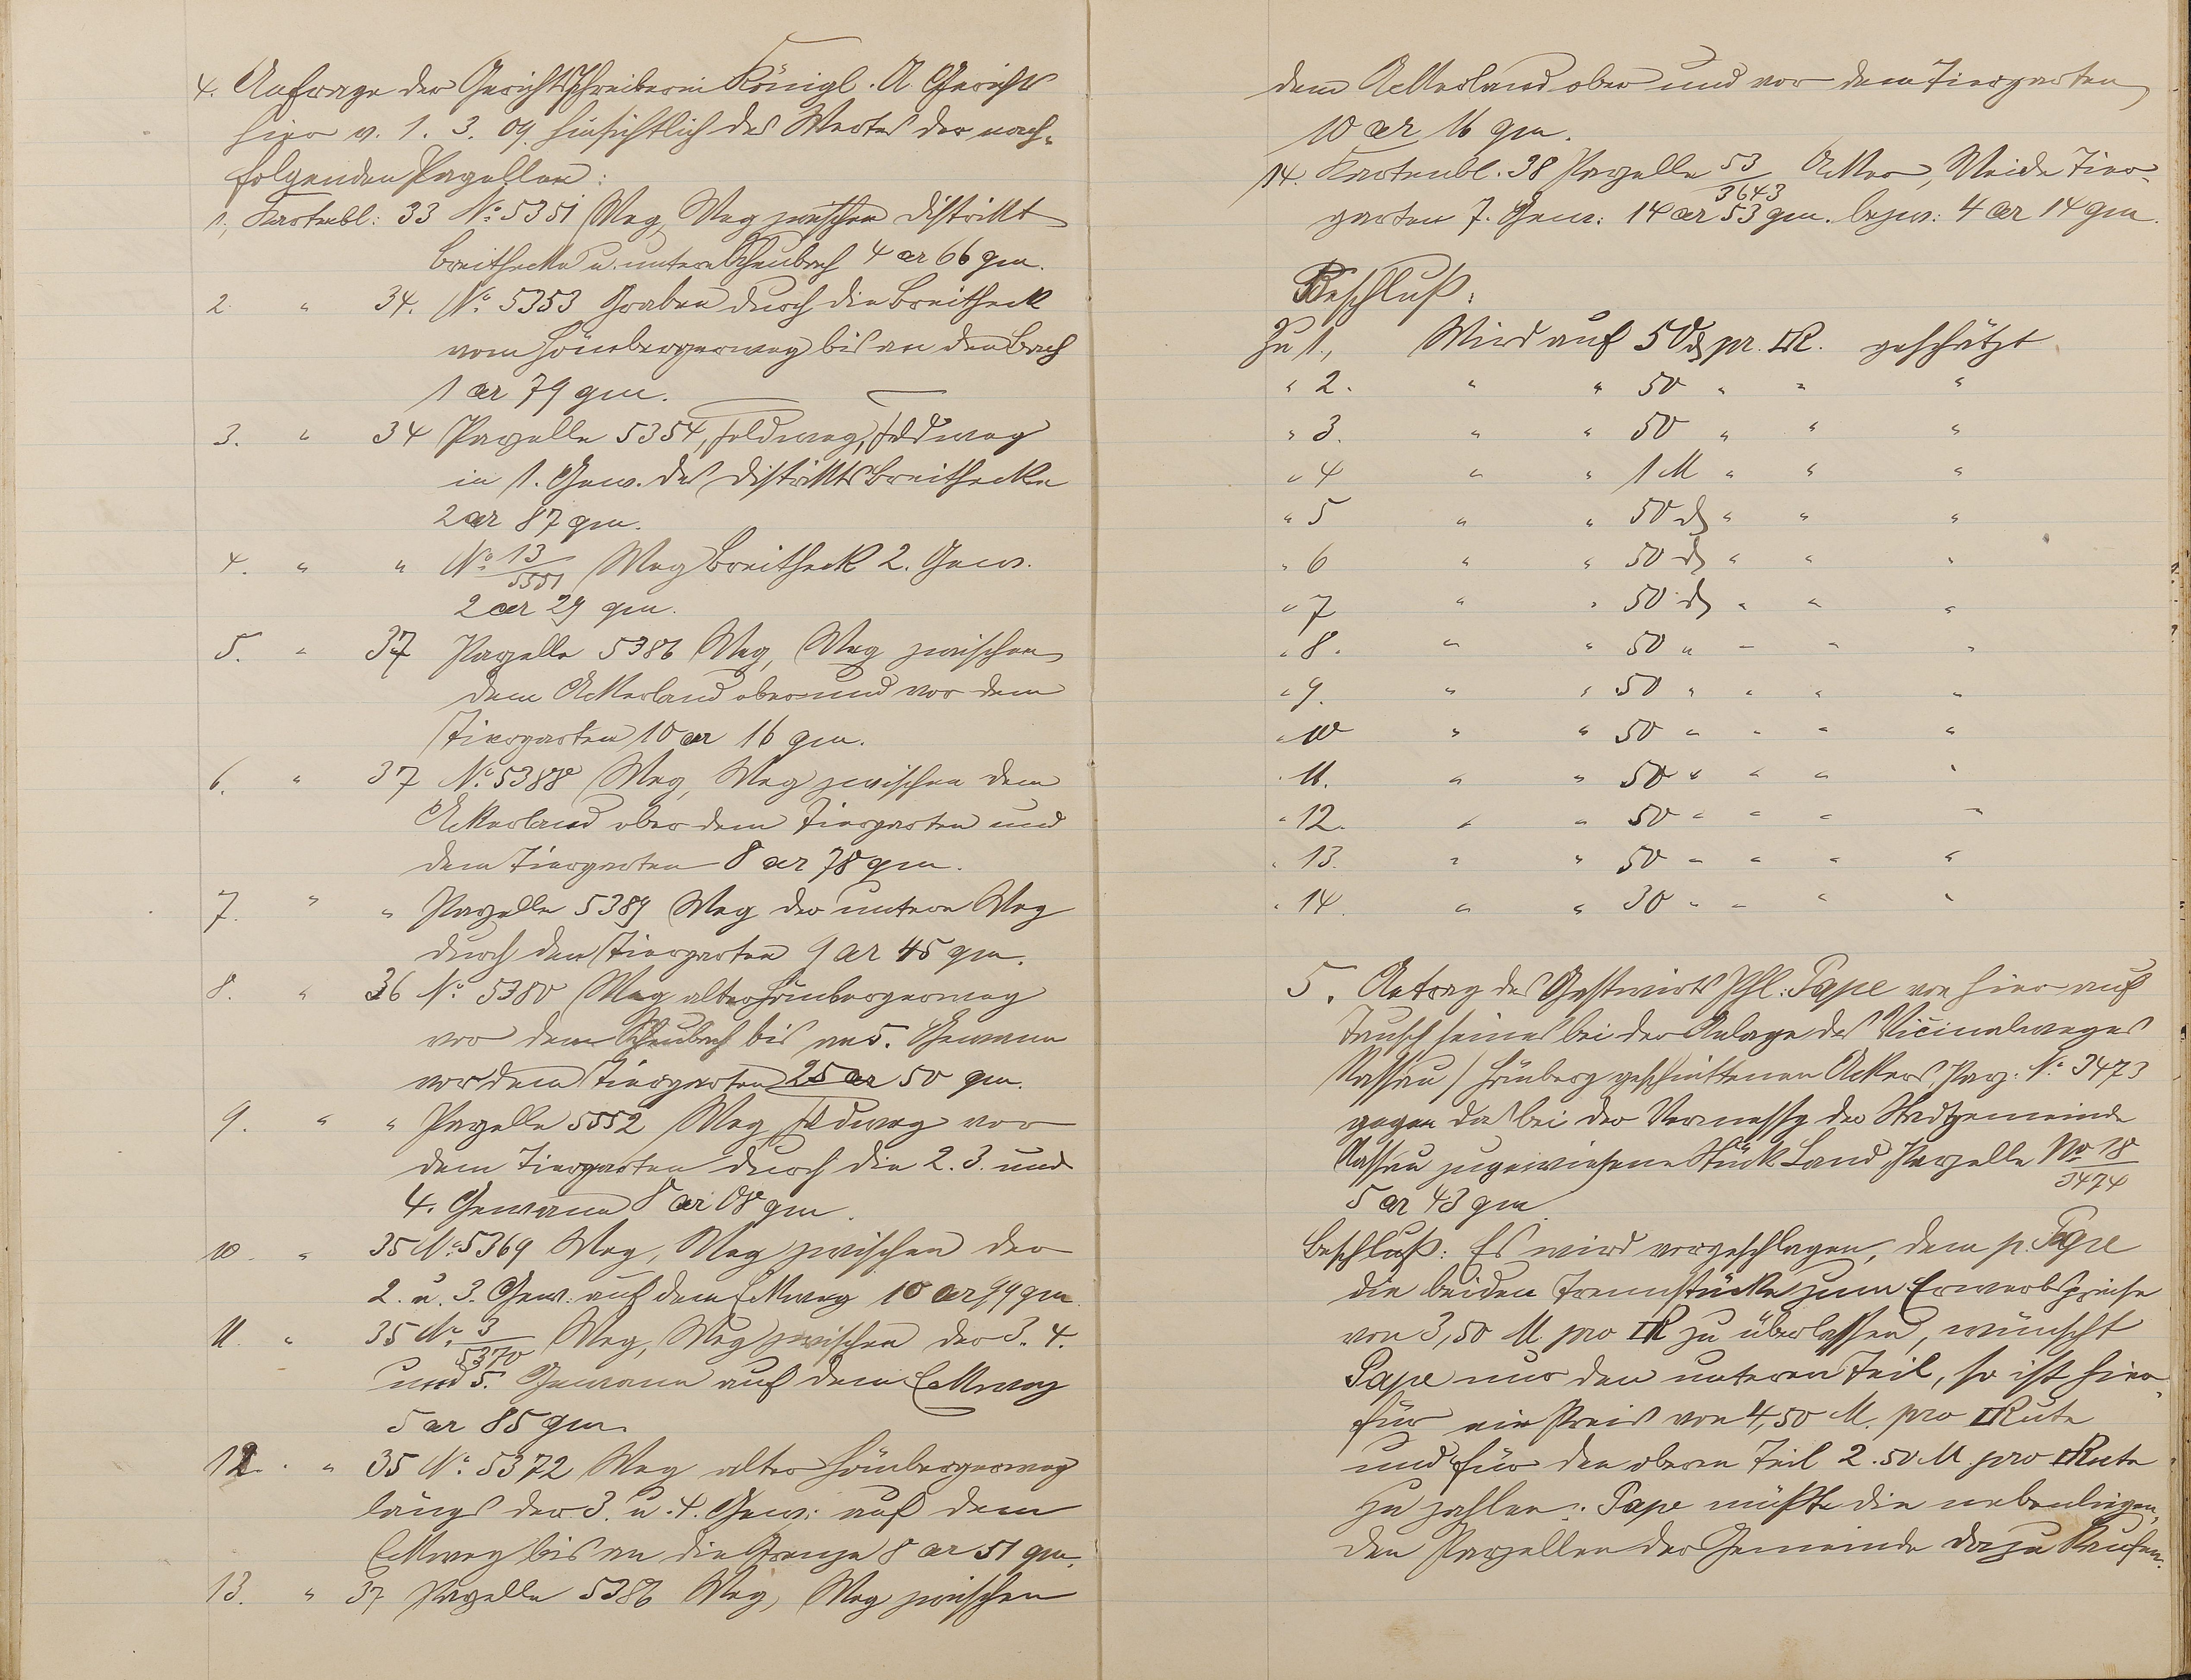 4. Anfrage der Gerichtsschreiberei Königl. A. Gericht
hier v. 1. 3. 09. hinsichtlich des Wertes der nach-
folgenden Parzellen:
1., Kartenbl: 33 No 5351 Weg, Weg zwischen Distrikt
Breithecke u. untere Scheubach 4 ar 66 qm.
2. " 34. No 5353 Graben durch die Breitheck
vom Hömbergerweg bis an den Bach
1 ar 79 qm.
3. " 34 Parzelle 5354, Feldweg, Feldweg
in 1. Gew. des Distrikts Breithecke
2 ar 87 qm.
4. " " No 13/5551 Weg Breitheck 2. Gew.
2 ar 29 qm.
5. " 37 Parzelle 5386 Weg, Weg zwischen
dem Ackerland ober und vor dem
Tiergarten 10 ar 16 qm.
6. " 37 No 5388 Weg, Weg zwischen dem
Ackerland ober dem Tiergarten und
dem Tiergarten 8 ar 78 qm.
7. " " Parzelle 5389 Weg der untere Weg
durch den Tiergarten 9 ar 45 qm.
8. " 36 No 5380 Weg alter Hömbergerweg
vor dem Scheubach bis an 5. Gewann
vor dem Tiergarten 25 ar 50 qm.
9. " " Parzelle 5552 Weg, Feldweg vor
dem Tiergarten durch die 2. 3. und
4. Gewann 8 ar 08 qm.
10. " 35 No 5369 Weg, Weg zwischen der
2. u. 3. Gew. auf dem Eckweg 10 ar 99 qm.
11. " 35 No 3/5370 Weg, Weg zwischen der 3. 4.
und 5. Gewann auf dem Eckweg
5 ar 85 qm.
12. " 35 No 5372 Weg alter Hömbergerweg
längs der 3. u. 4. Gew: auf dem
Eckweg bis an die Grenze 8 ar 51 qm.
13. " 37 Parzelle 5386 Weg, Weg zwischen
dem Ackerland ober und vor dem Tiergarten,
10 ar 16 qm.
14. Kartenbl. 38 Parzelle 53/3643 Acker, Weide Tier-
garten 7. Gew: 14 ar 53 qm. bezw: 4 ar 14 qm.
Beschluß:
Zu 1., Wird auf 50 ₰ pr. □R. geschätzt
" 2. " " 50 " " "
" 3. " " 50 " " "
" 4 " " 1 M " " "
" 5 " " 50 ₰ " " "
" 6 " " 50 ₰ " " "
" 7 " " 50 ₰ " " "
" 8. " " 50 " " " "
" 9. " " 50 " " " "
" 10 " " 50 " " " "
" 11. " " 50 " " " "
" 12. " " 50 " " " "
" 13. " " 50 " " " "
" 14. " " 30 " " " "
5. Antrag des Gastwirts Phl: Pape von hier auf
Tausch seines bei der Anlage des Vicinalweges
Nassau / Hömberg geschnittenen Ackers, Parz: No 3473
gegen das bei der Vermessg der Stadtgemeinde
Nassau zugewiesene Stück Land, Parzelle No 18/3474
5 ar 43 qm.
Beschluß: Es wird vorgeschlagen, dem p. Pape
die beiden Trennstücke zum Erwerbspreise
von 3,50 M. pro □R zu überlassen, wünscht
Pape nur den unteren Teil, so ist hier-
für ein Preis von 4,50 M. pro □Rute
und für den oberen Teil 2.50 M. pro □Rute
zu zahlen. Pape müßte die nebenliegen-
den Parzellen der Gemeinde dazu kaufen.